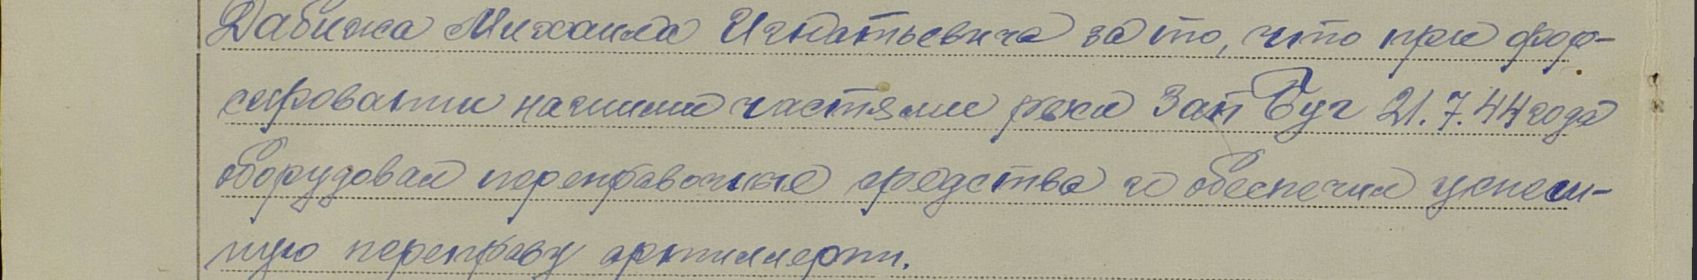 Дабижа Михаила Игнатьевича за то, что при фор-
сировании нашими частями реки Зап Буг 21.7.44 года
оборудовал переправочные средства и обеспечил успеш-
ную переправу артиллерии.